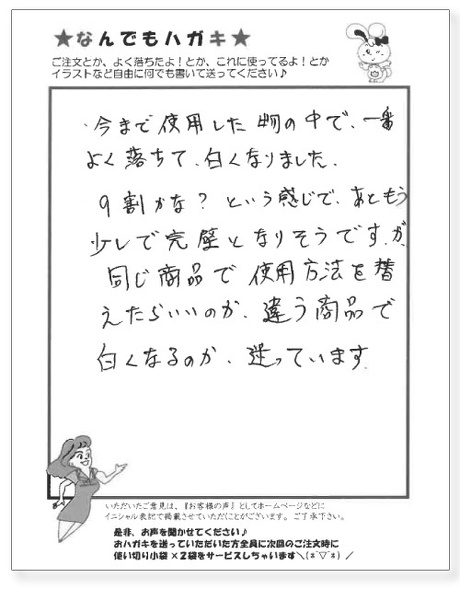 ★なんでもハガキ★
ご注文とか、よく落ちたよ！とか、これに使ってるよ！とか
イラストなど自由に何でも書いて送ってください♪
・今まで使用した物の中で、一番
よく落ちて、白くなりました。
9割かな？という感じで、あともう
少しで完璧となりそうですが、
同じ商品で使用方法を替
えたらいいのか、違う商品で
白くなるのか、迷っています。
いただいたご意見は、『お客様の声』としてホームページなどに
イニシャル表記で掲載させていただくことがございます。ご了承下さい。
是非、お声を聞かせてください♪
おハガキを送っていただいた方全員に次回のご注文時に
使い切り小袋×2袋をサービスしちゃいます＼(*´▽`*)／